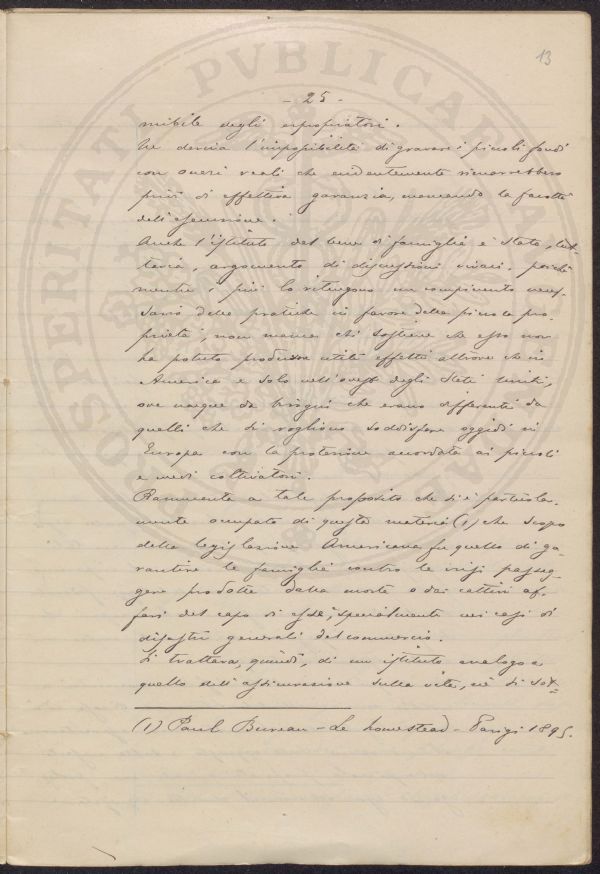 13
- 25 -
mibile degli espropriatori.
Ne deriva l'impossibilità di gravare i piccoli fondi
con oneri reali che evidentemente rimarrebbero
privi di effettiva garanzia, mancando la facoltà
dell'esecuzione.
Anche l'istituto del bene di famiglia è stato, tut-
tavia, argomento di discussioni vivaci, poichè
mentre i più lo ritengono un complemento neces-
sario delle pratiche in favore della piccola pro-
prietà, non manca chi sostiene che esso non
ha potuto produrre utili effetti altrove che in
America e solo nell'ovest degli Stati Uniti,
ove nacque da bisogni che erano differenti da
quelli che si vogliono soddisfare oggidì in
Europa con la protezione accordata ai piccoli
e medi coltivatori.
Rammenta a tale proposito che si è particolar
mente occupato di questa materia (1) che scopo
della legislazione Americana fu quello di ga-
rantire le famiglie contro le crisi passeg-
gere prodotte dalla morte o dai cattivi af-
fari del capo di esse, specialmente nei casi di
disastri generali del commercio.
Si trattava, quindi, di un istituto analogo a
quello dell'assicurazione sulla vita, nè si sot=
(1) Paul Bureau - Le homestead - Parigi 1895.
PROSPERITATI PVBLICAE